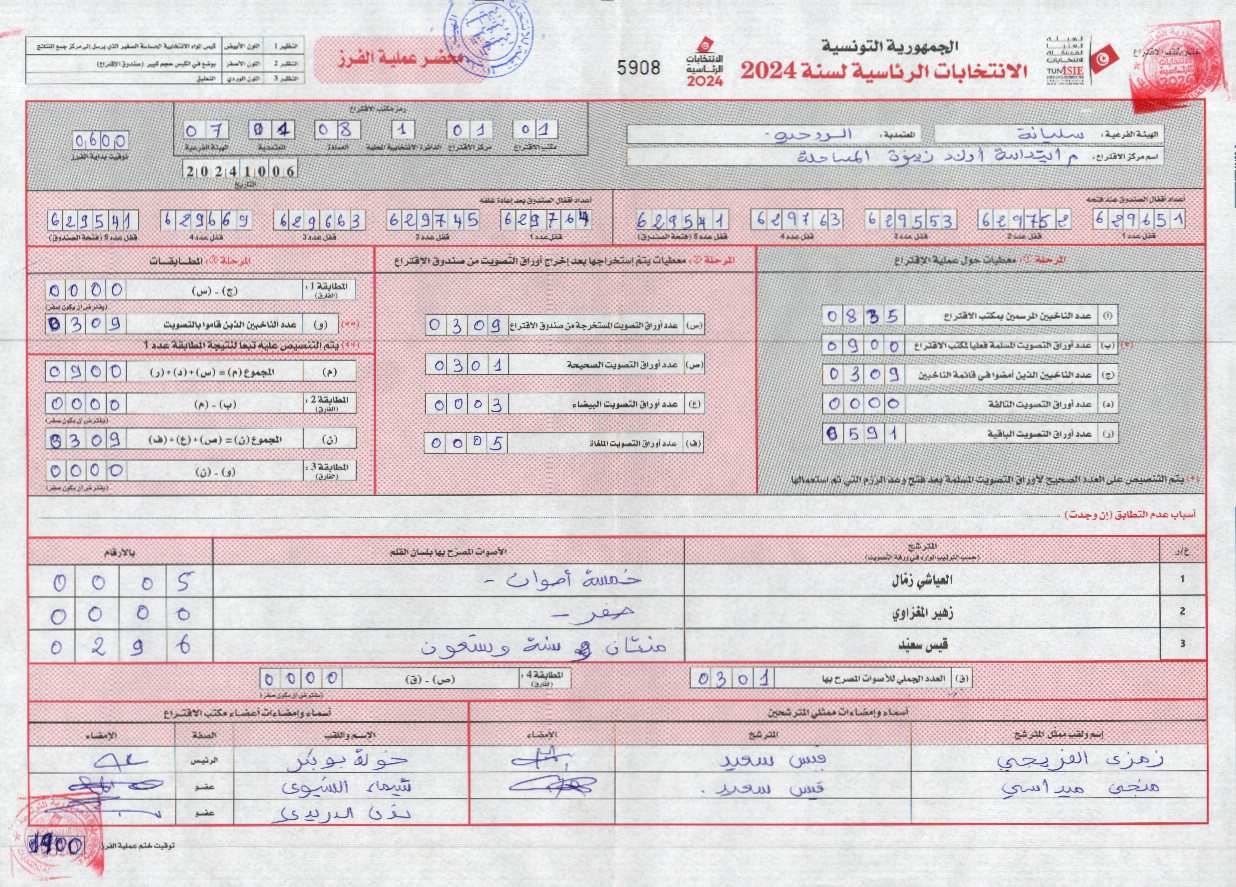 الجمهورية التونسية
الانتخابات الرئاسية لسنة 2024
الانتخابات الرئاسية 2024
5908
محضر عملية الفرز
النظير 1 اللون الأبيض كيس المواد الانتخابية الحساسة الصغير الذي يرسل إلى مركز جمع النتائج
النظير 2 اللون الأصفر يوضع في الكيس حجم كبير (صندوق الاقتراع)
النظير 3 اللون الوردي التعليق
الهيئة الفرعية : سليانة المعتمدية : الروحية
اسم مركز الاقتراع : م ابتدائية أولاد زيتون المساحلة
رمز مكتب الاقتراع
01 01 1 08 04 07
مكتب الاقتراع مركز الاقتراع الدائرة الانتخابية المحلية العمادة المعتمدية الهيئة الفرعية
20241006
التاريخ
0600
توقيت بداية الفرز
أعداد أقفال الصندوق عند فتحه
629651 629752 629553 629763 629541
قفل عدد 1 قفل عدد 2 قفل عدد 3 قفل عدد 4 قفل عدد 5 (فتحة الصندوق)
أعداد أقفال الصندوق بعد إعادة غلقه
629764 629745 629663 629669 629541
قفل عدد 1 قفل عدد 2 قفل عدد 3 قفل عدد 4 قفل عدد 5 (فتحة الصندوق)
المرحلة ① : معطيات حول عملية الاقتراع
(أ) عدد الناخبين المرسمين بمكتب الاقتراع 0835
(*) (ب) عدد أوراق التصويت المسلمة فعليا لمكتب الاقتراع 0900
(ج) عدد الناخبين الذين أمضوا في قائمة الناخبين 0309
(د) عدد أوراق التصويت التالفة 0000
(ر) عدد أوراق التصويت الباقية 0591
(*) يتم التنصيص على العدد الصحيح لأوراق التصويت المسلمة بعد فتح وعد الرزم التي تم استعمالها
المرحلة ② : معطيات يتم إستخراجها بعد إخراج أوراق التصويت من صندوق الإقتراع
(س) عدد أوراق التصويت المستخرجة من صندوق الاقتراع 0309
(ص) عدد أوراق التصويت الصحيحة 0301
(ع) عدد أوراق التصويت البيضاء 0003
(ف) عدد أوراق التصويت الملغاة 0005
المرحلة ③ : المطابقات
المطابقة 1 : (الفارق) (ج) - (س) 0000
(يفترض أن يكون صفر)
(**) (و) عدد الناخبين الذين قاموا بالتصويت 0309
(**) يتم التنصيص عليه تبعا لنتيجة المطابقة عدد 1
(م) المجموع (م) = (س) + (د) + (ر) 0900
المطابقة 2 : (الفارق) (ب) - (م) 0000
(يفترض أن يكون صفر)
(ن) المجموع (ن) = (ص) + (ع) + (ف) 0309
المطابقة 3 : (الفارق) (و) - (ن) 0000
(يفترض أن يكون صفر)
أسباب عدم التطابق (إن وجدت)
ع/ر المترشح الأصوات المصرح بها بلسان القلم بالأرقام
(حسب الترتيب الوارد في ورقة التصويت)
1 العياشي زمّال خمسة أصوات - 0005
2 زهير المغزاوي صفر - 0000
3 قيس سعيّد مئتان و ستة وتسعون 0296
(ق) العدد الجملي للأصوات المصرح بها 0301
المطابقة 4 : (الفارق) (ص) - (ق) 0000
(يفترض أن يكون صفر)
أسماء وإمضاءات ممثلي المترشحين
إسم ولقب ممثل المترشح المترشح الأمضاء
رمزي الفريحي قيس سعيد
منجي ميداسي قيس سعيد
أسماء وإمضاءات أعضاء مكتب الاقتراع
الإسم واللقب الصفة الأمضاء
خولة بوبكر الرئيس
شيماء الشيوي عضو
الدريدي عضو
توقيت ختم عملية الفرز 1900